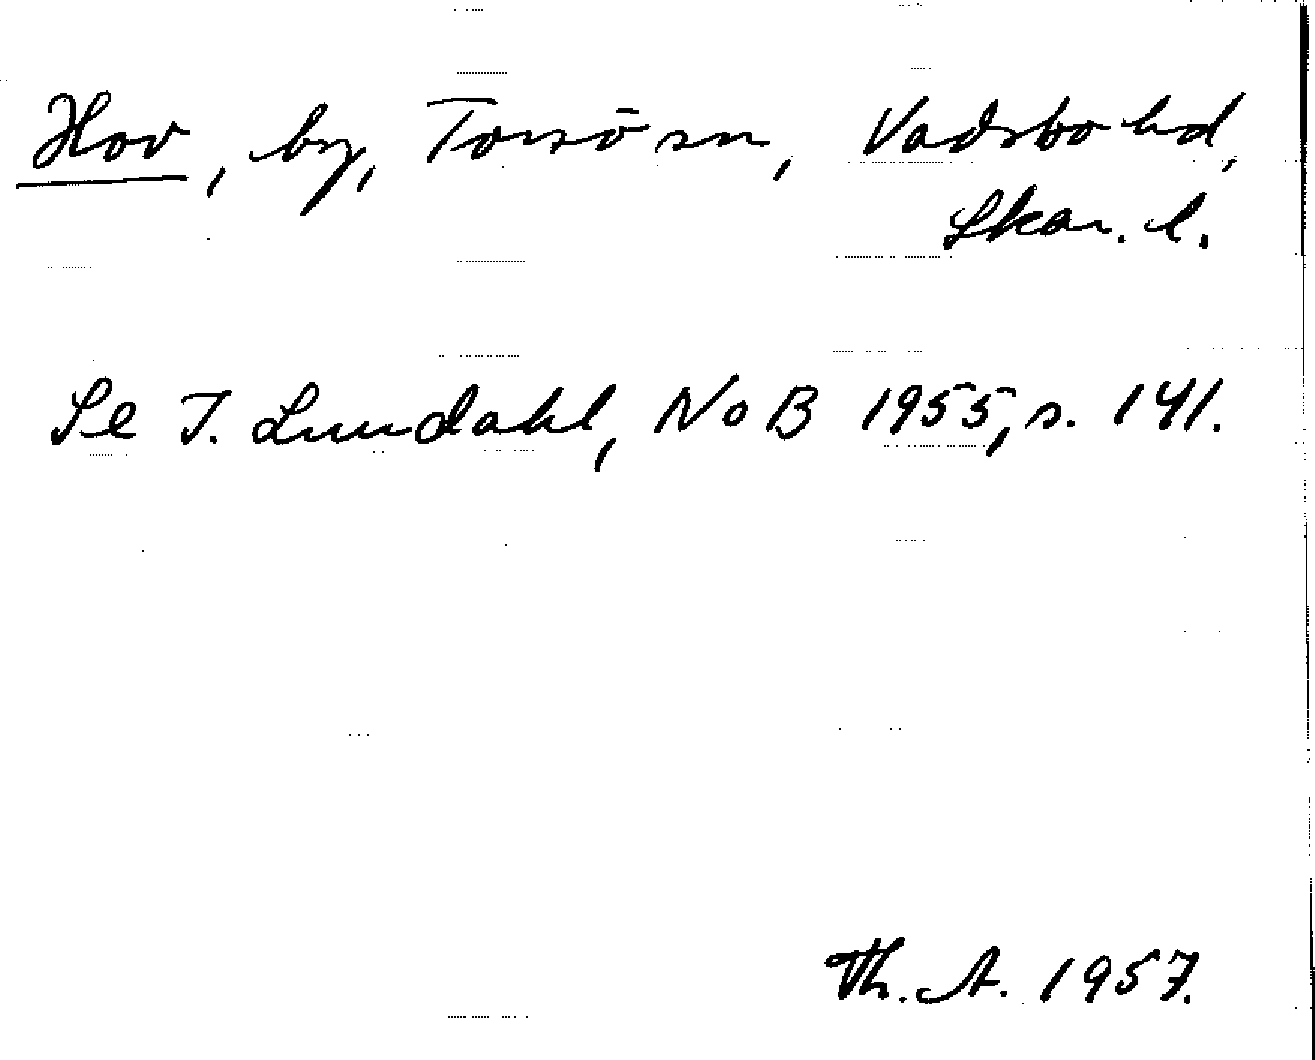 Hov, by, Torsö sn, Vadsbo hd,
Skar. l.
Se I. Lundahl, NoB 1955, s. 141.
Th. A. 1957.